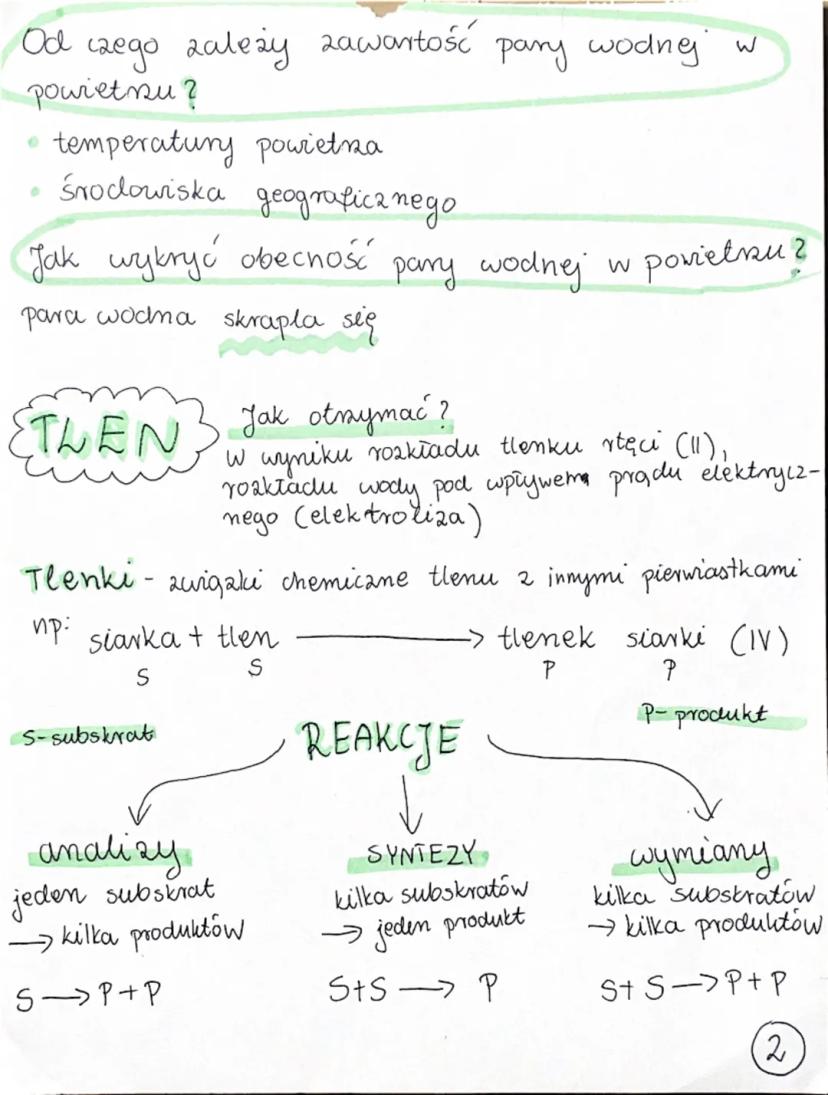 Od czego zależy zawartość pary wodnej w
powietrzu?
• temperatury powietrza
• środowiska geograficznego
Jak wykryć obecność pary wodnej w powietrzu?
para wodna skrapla się
TLEN
Jak otrzymać?
w wyniku rozkładu tlenku rtęci (II),
rozkładu wody pod wpływem prądu elektrycz-
nego (elektroliza)
Tlenki - związki chemiczne tlenu z innymi pierwiastkami
np: siarka + tlen ⟶ tlenek siarki (IV)
S S P P
S-substrat
P-produkt
REAKCJE
analizy
jeden substrat
→ kilka produktów
S → P+P
SYNTEZY
kilka substratów
→ jeden produkt
S+S → P
wymiany
kilka substratów
→ kilka produktów
S+S → P+P
2